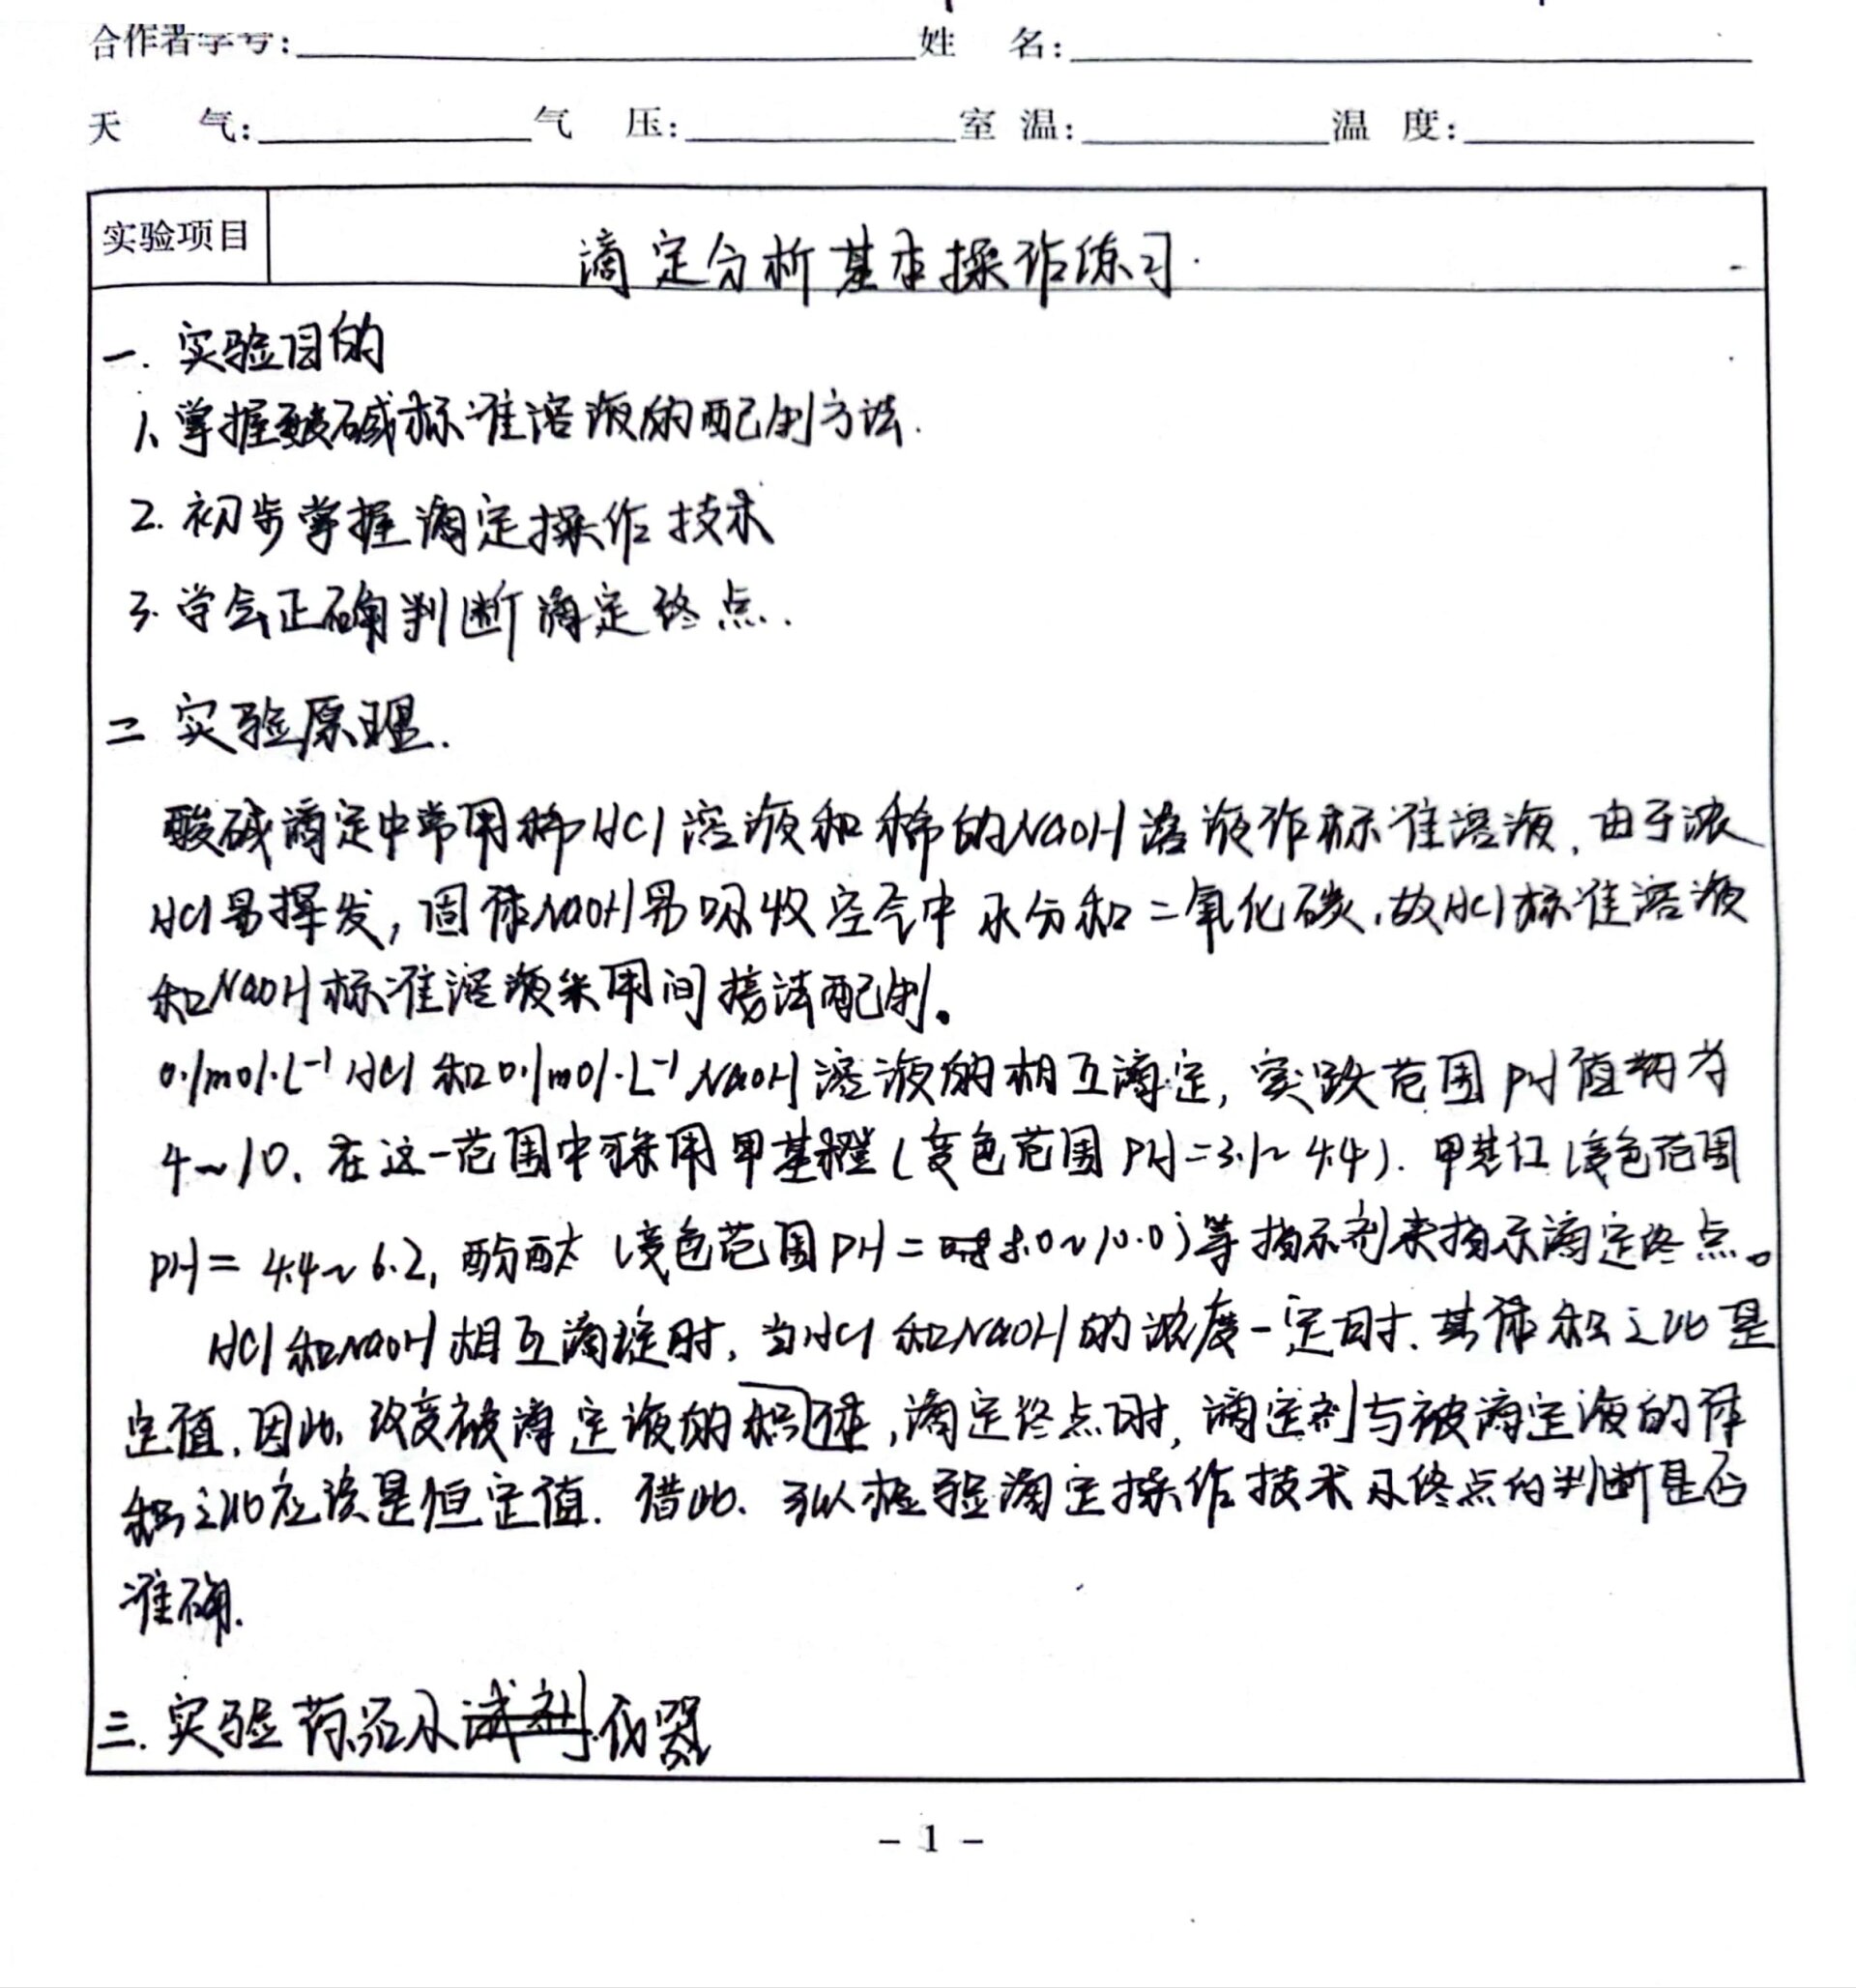 合作者学号: 姓 名:
天 气: 气 压: 室 温: 温 度:
实验项目 滴定分析基本操作练习.
一. 实验目的
1、掌握酸碱标准溶液的配制方法.
2. 初步掌握滴定操作技术
3. 学会正确判断滴定终点.
二 实验原理.
酸碱滴定中常用稀HCl溶液和稀的NaOH溶液作标准溶液, 由于浓
HCl易挥发, 固体NaOH易吸收空气中水分和二氧化碳, 故HCl标准溶液
和NaOH标准溶液采用间接法配制。
0.1mol·L⁻¹ HCl 和0.1mol·L⁻¹ NaOH溶液的相互滴定, 突跃范围PH值约为
4~10. 在这一范围中可采用甲基橙(变色范围PH=3.1~4.4). 甲基红(变色范围
PH= 4.4~6.2, 酚酞 (变色范围PH= 8.0~10.0)等指示剂来指示滴定终点。
HCl和NaOH相互滴定时, 当HCl和NaOH的浓度一定时. 其体积之比是
定值, 因此, 改变被滴定液的积体, 滴定终点时, 滴定剂与被滴定液的体
积之比应该是恒定值. 借此. 可以检验滴定操作技术及终点的判断是否
准确.
三. 实验药品及试剂仪器
- 1 -